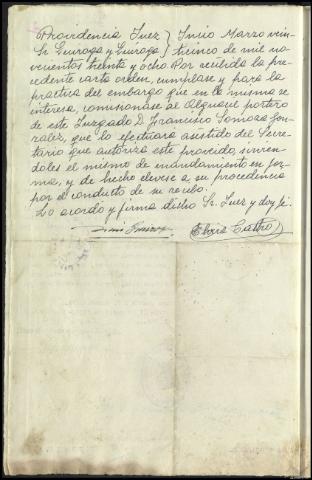 Providencia Juez } Incio Marzo vein-
Sr Quiroga y Quiroga } ticinco de mil no-
vecientos treinta y ocho Por recibida la pre-
cedente carta orden, cumplase y para la
practica del embargo que en la misma se
interesa, comisionase al Alguacil portero
de este Juzgado D. Francisco Somoza Gon-
zalez, que lo efectuará asistido del Secre-
tario que autoriza este proveido, sirvien-
doles el mismo de mandamiento en for-
ma, y de hecho elevese a su procedencia
por el conducto de su recibo.
Lo acordó y firma dicho Sr. Juez y doy fe.
Castro